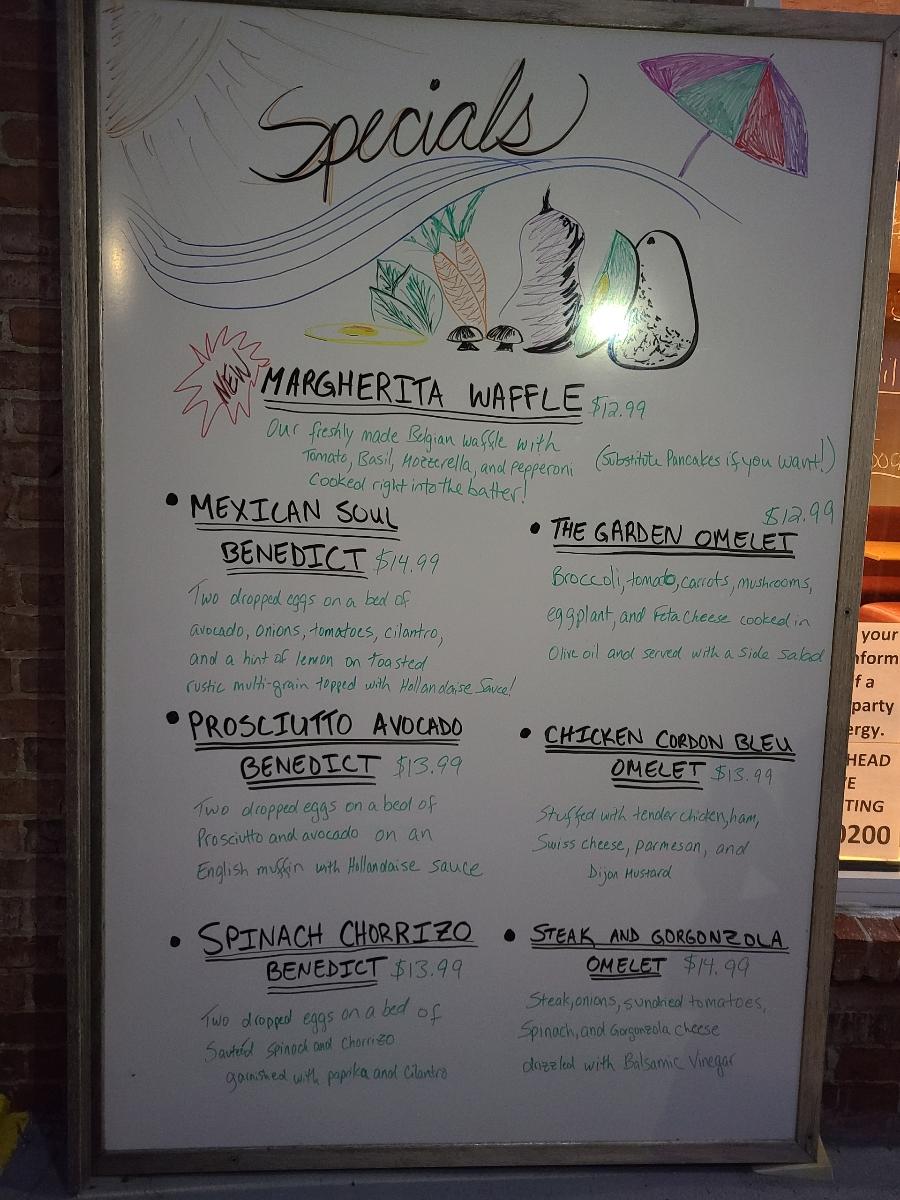 Specials
NEW
MARGHERITA WAFFLE $12.99
Our freshly made Belgian waffle with
Tomato, Basil, Mozzerella, and Pepperoni
Cooked right into the batter!
(Substitute Pancakes if you want!)
• MEXICAN SOUL
BENEDICT $14.99
Two dropped eggs on a bed of
avocado, onions, tomatoes, cilantro,
and a hint of lemon on toasted
rustic multi-grain topped with Hollandaise Sauce!
$12.99
• THE GARDEN OMELET
Broccoli, tomato, carrots, mushrooms,
eggplant, and Feta Cheese cooked in
Olive oil and served with a side salad
• PROSCIUTTO AVOCADO
BENEDICT $13.99
Two dropped eggs on a bed of
Prosciutto and avocado on an
English muffin with Hollandaise sauce
• CHICKEN CORDON BLEU
OMELET $13.99
Stuffed with tender chicken, ham,
Swiss cheese, parmesan, and
Dijon Mustard
• SPINACH CHORRIZO
BENEDICT $13.99
Two dropped eggs on a bed of
Sauteed spinach and chorrizo
garnished with paprika and cilantro
• STEAK AND GORGONZOLA
OMELET $14.99
Steak, onions, sundried tomatoes,
Spinach, and Gorgonzola cheese
drizzled with Balsamic Vinegar
your
nform
f a
party
ergy.
HEAD
E
TING
0200